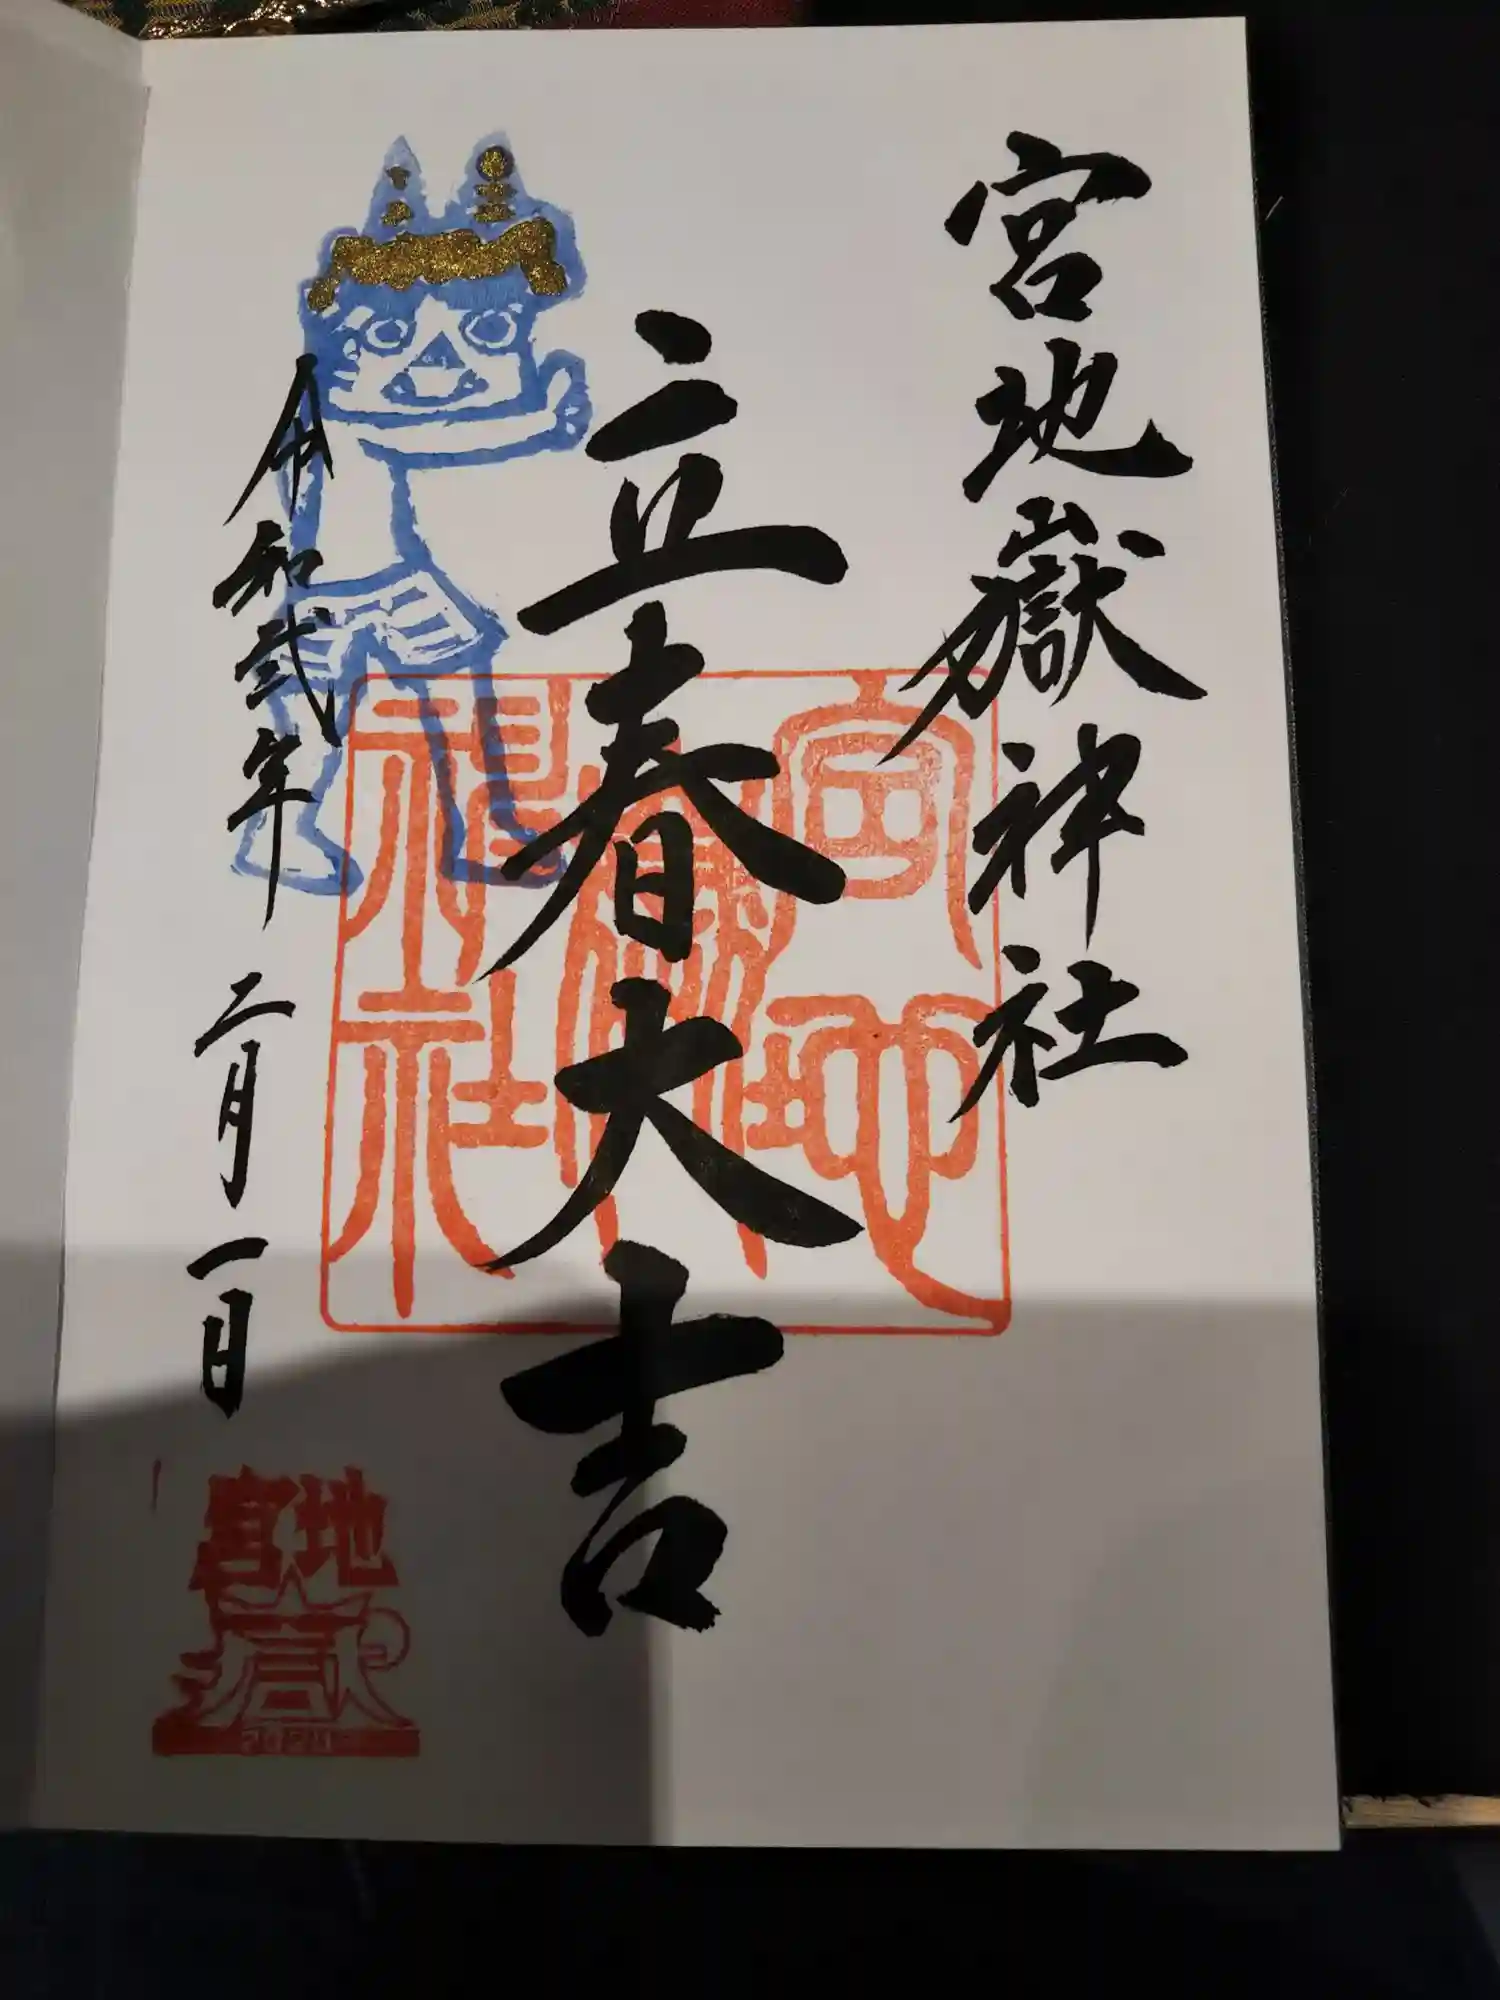 宮地嶽神社
立春大吉
令和弐年
二月一日
宮地
嶽神
社
宮地
嶽
2020